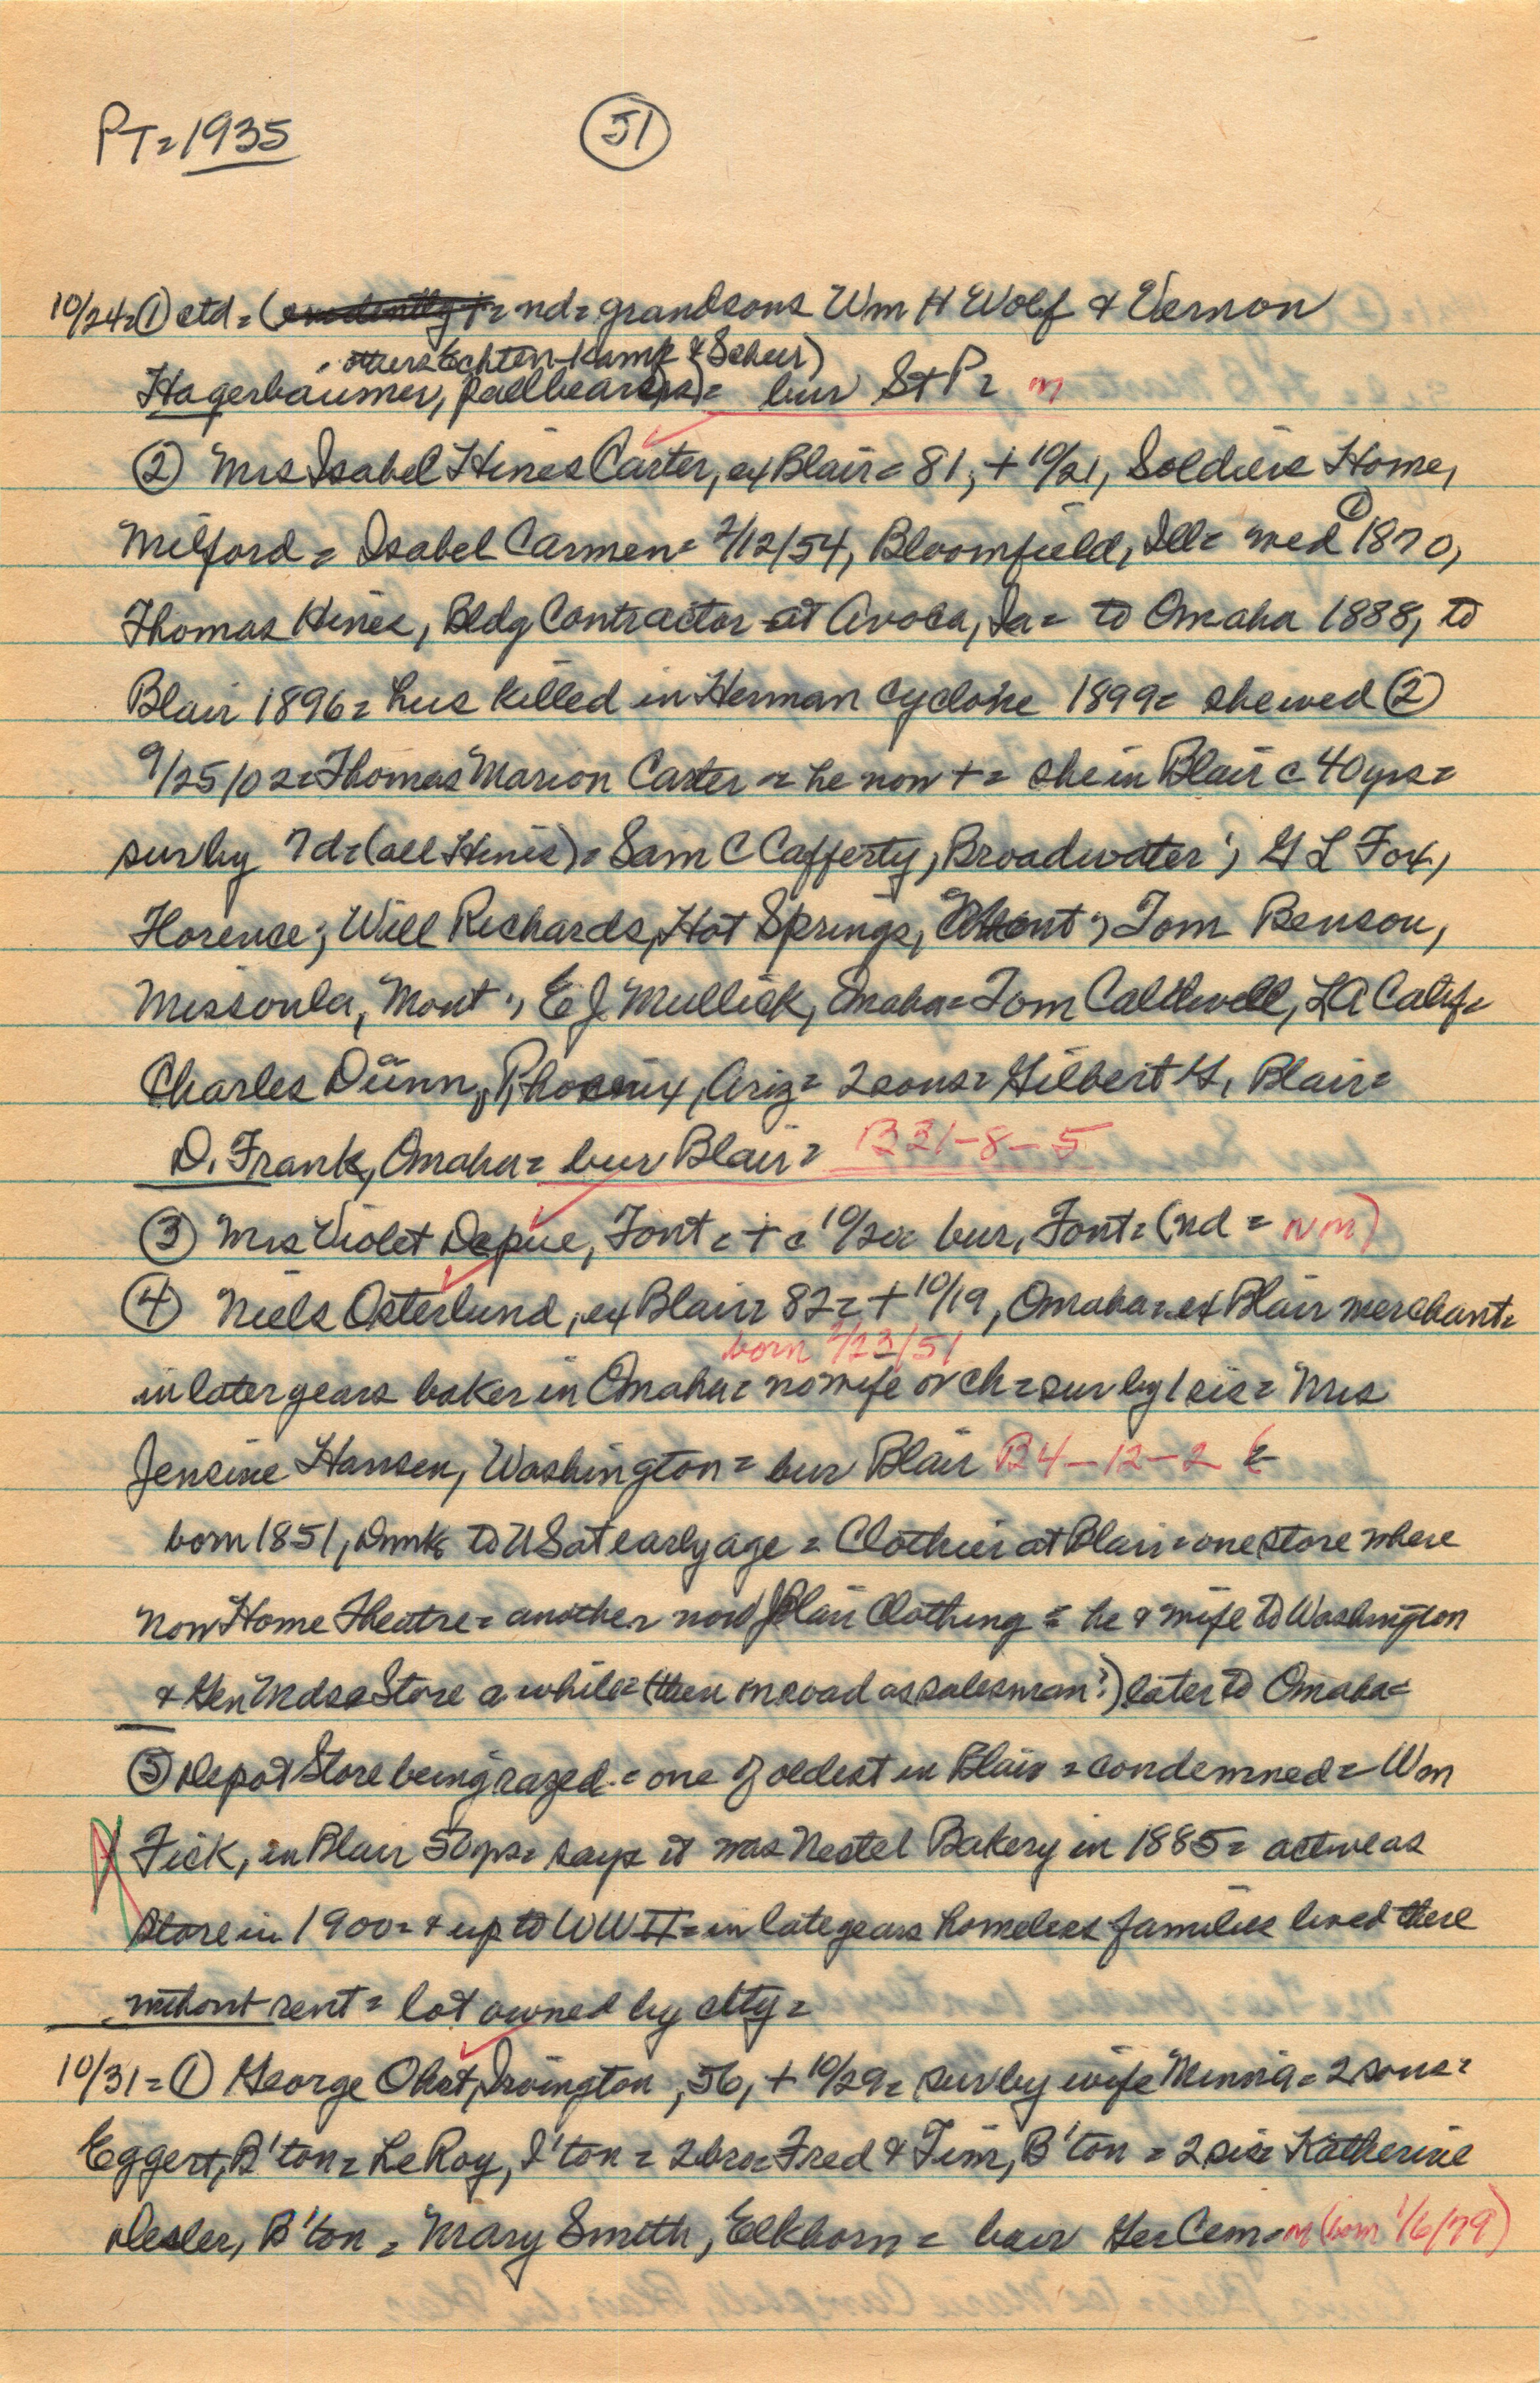 PT=1935 (51)
10/24=① ctd=( = nd= grandsons Wm H Wolf & Vernon
others Echten-kamp & Scheer)
Hagerbaumer, pallbearers)= bur St P= m
② Mrs Isabel Hines Carter, ex Blair= 81, + 10/21, Soldiers Home,
Milford= Isabel Carmen= 2/12/54, Bloomfield, Ill= wed ① 1870,
Thomas Hines, Bldg Contractor at Avoca, Ia= to Omaha 1888, to
Blair 1896= hus killed in Herman cyclone 1899= she wed ②
9/25/02= Thomas Marion Carter = he now += she in Blair c 40 yrs=
sur by 7 d=(all Hines)= Sam C Cafferty, Broadwater; G L Fox,
Florence; Will Richards, Hot Springs, Mont; Tom Benson,
Missoula, Mont; E J Mullick, Omaha= Tom Caldwell, LA Calif=
Charles Dunn, Phoenix, Ariz= 2 sons= Gilbert H, Blair=
D. Frank, Omaha= bur Blair= B31-8-5
③ Mrs Violet Depue, Font= + c 10/20= bur, Font= (nd= nm)
④ Niels Osterlund, ex Blair= 82= + 10/19, Omaha= ex Blair merchant=
born 2/23/51
in later years baker in Omaha= no wife or ch= sur by 1 sis= Mrs
Jensine Hansen, Washington= bur Blair B4-12-2 (=
born 1851, Dnmk to US at early age= Clothier at Blair= one store where
now Home Theatre= another now Blair Clothing= he & wife to Washington
& Gen Mdse Store a while= (then on road as salesman?) later to Omaha=
⑤ Depot Store being razed= one of oldest in Blair= condemned= Wm
Fick, in Blair 50 yrs= says it was Nestel Bakery in 1885= active as
store in 1900= & up to WWII= in late years homeless families lived there
without rent= lot owned by city=
10/31=① George Ohrt, Irvington, 56, + 10/29= sur by wife Minnie= 2 sons=
Eggert, B'ton= LeRoy, I'ton= 2 bro= Fred & Tim, B'ton= 2 sis= Katherine
Desler, B'ton= Mary Smith, Elkhorn= bur Ger Cem= m (born 1/6/79)